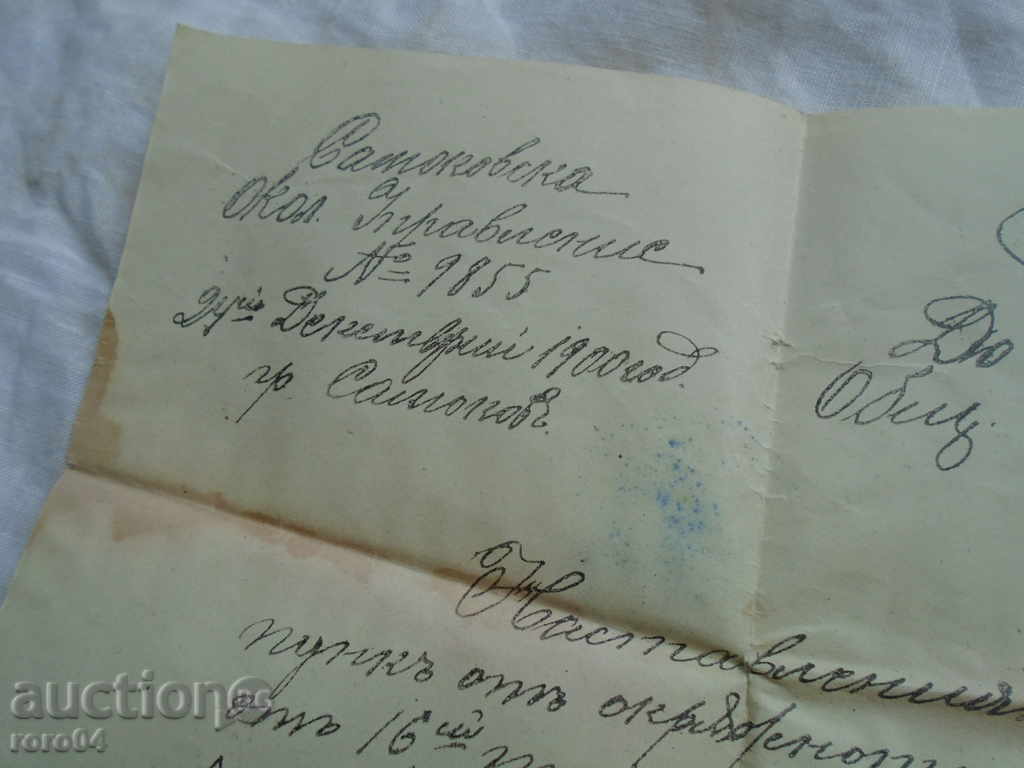 Самоковска
Окол. Управление
№ 9855
Декемврий 1900 год.
гр. Самоковъ.
До
Общ.
Наставления
пункъ отъ окръжно
отъ 16ий
auction.bg
roro04